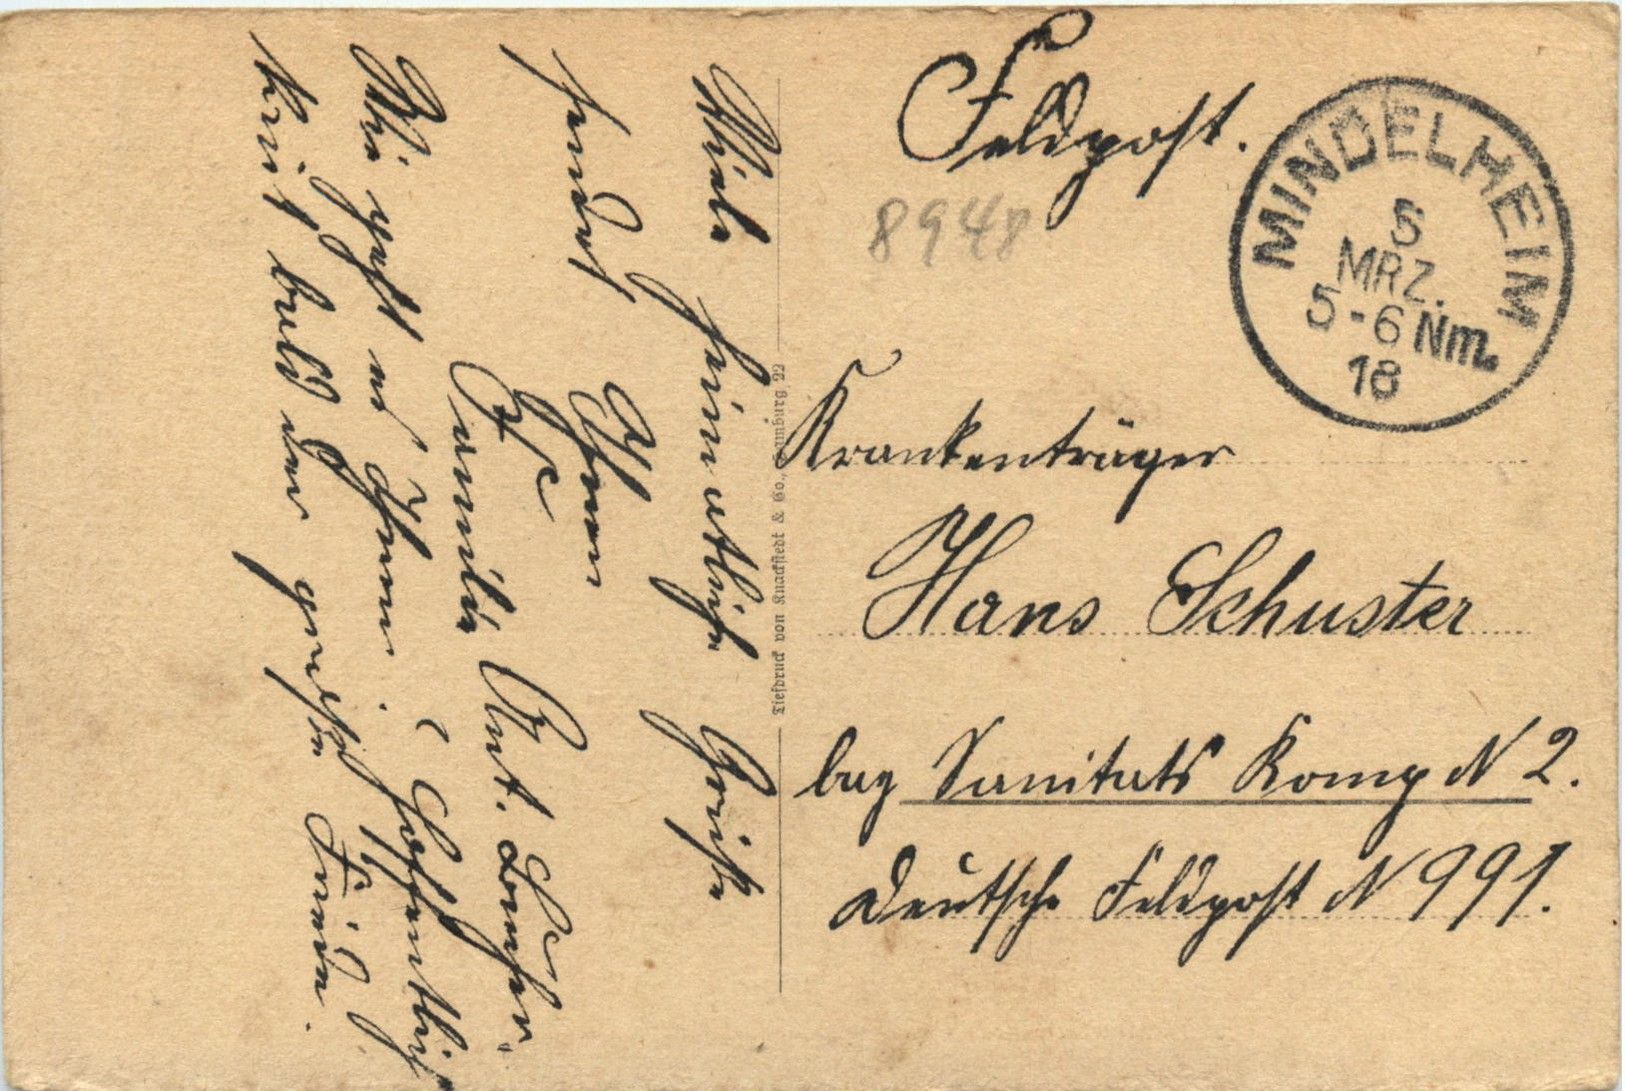 Feldpost.
8948
MINDELHEIM
5
MRZ.
5-6 Nm.
18
Krankenträger
Hans Schuster
bay Sanitäts Komp N 2.
Deutsche Feldpost N 991.
Tiefdruck von Knackstedt & Co., Hamburg 22
Viele heimathliche Grüße
sendet Ihnen
Familie Ant.
Wie geht es Ihnen. Hoffentlich
bald der Friede.